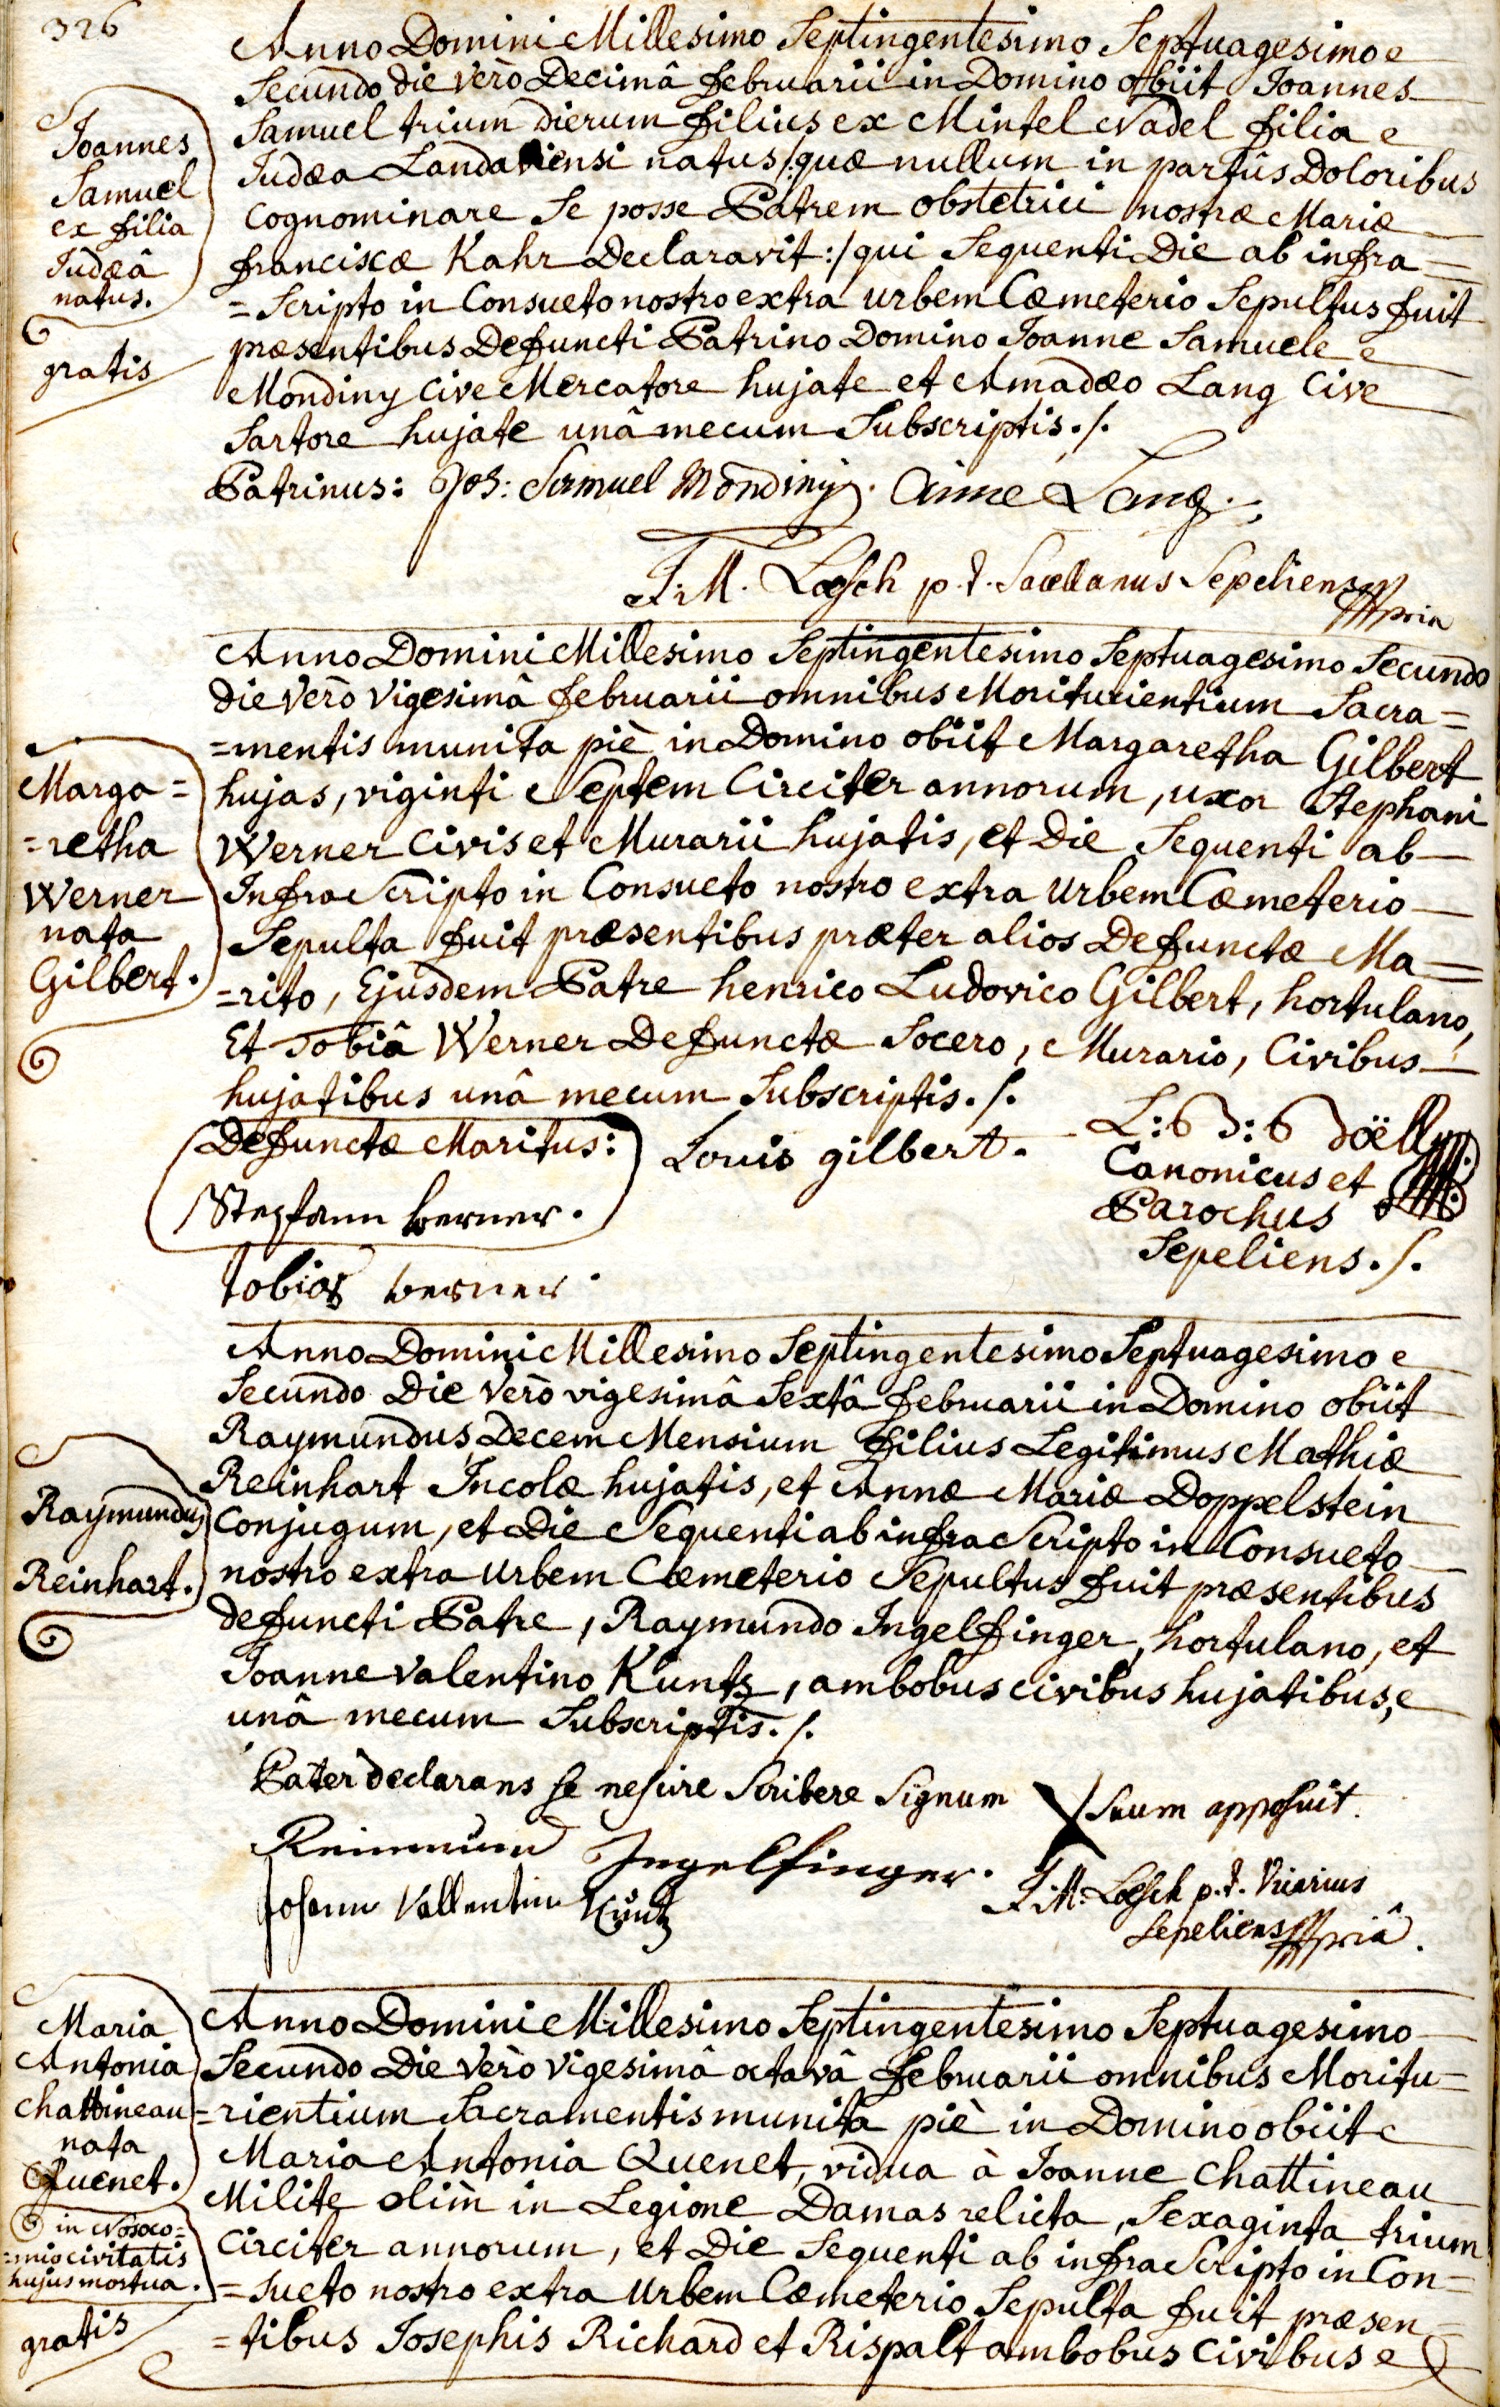 326
Anno Domini Millesimo Septingentesimo Septuagesimo
Secundo die verò Decimâ februarii in Domino obiit Joannes
Samuel trium dierum filius ex Mintel Nadel filia
Judæa Landaviensi natus /:quæ nullum in partûs Doloribus
Cognominare Se posse Patrem obstetrici nostræ Mariæ
franciscæ Kahr Declaravit:/ qui Sequenti Die ab infra=
=Scripto in Consueto nostro extra urbem Cœmeterio Sepultus fuit
præsentibus Defuncti Patrino Domino Joanne Samuele
Mondiny Cive Mercatore hujate et Amadæo Lang Cive
Sartore hujate unâ mecum Subscriptis./.
Joannes
Samuel
ex filia
Judæâ
natus.
gratis
Patrinus: Joh: Samuel Mondiny. Aime Lang.
F: M. Lœsch p. t. Sacellanus Sepeliens mppria
Anno Domini Millesimo Septingentesimo Septuagesimo Secundo
Die verò vigesimâ februarii omnibus Moriturientium Sacra=
=mentis munita piè in Domino obiit Margaretha Gilbert
hujas, viginti Septem Circiter annorum, uxor Stephani
Werner Civis et Murarii hujatis, et Die Sequenti ab
Infra Scripto in Consueto nostro extra Urbem Cœmeterio
Sepulta fuit præsentibus præter alios Defunctæ Ma=
=rito, Ejusdem Patre henrico Ludovico Gilbert, hortulano,
Et Tobiâ Werner Defunctæ Socero, Murario, Civibus
hujatibus unâ mecum Subscriptis./.
Marga=
=retha
Werner
nata
Gilbert.
Defunctæ Maritus:
Stephann werner.
Louis gilbert.
Canonicus et
Parochus
Sepeliens./.
tobias werner
Anno Domini Millesimo Septingentesimo Septuagesimo
Secundo Die verò vigesimâ Sextâ februarii in Domino obiit
Raymundus Decem Mensium filius Legitimus Mathiæ
Reinhart Incolæ hujatis, et Annæ Mariæ Doppelstein
Conjugum, et Die Sequenti ab infra Scripto in Consueto
nostro extra urbem Cœmeterio Sepultus fuit præsentibus
defuncti Patre, Raymundo Ingelfinger, hortulano, et
Joanne Valentino Kuntz, ambobus civibus hujatibus,
unâ mecum Subscriptis./.
Raymundus
Reinhart.
Pater declarans se nescire Scribere Signum X Suum apposuit.
Reimmund Ingelfinger.
Johann Vallentin Kuntz
F: M: Lœsch p. t. Vicarius
Sepeliens mppriâ.
Anno Domini Millesimo Septingentesimo Septuagesimo
Secundo Die verò vigesimâ octavâ februarii omnibus Moritu=
=rientium Sacramentis munita piè in Domino obiit
Maria Antonia Quenet, vidua à Joanne Chattineau
Milite olim in Legione Damas relicta, Sexaginta trium
Circiter annorum, et Die Sequenti ab infra Scripto in Con=
=sueto nostro extra Urbem Cœmeterio Sepulta fuit præsen=
=tibus Josephis Richard et Rispalt ambobus Civibus
Maria
Antonia
Chattineau
nata
Quenet.
in Nosoco=
=mio civitatis
hujus mortua.
gratis